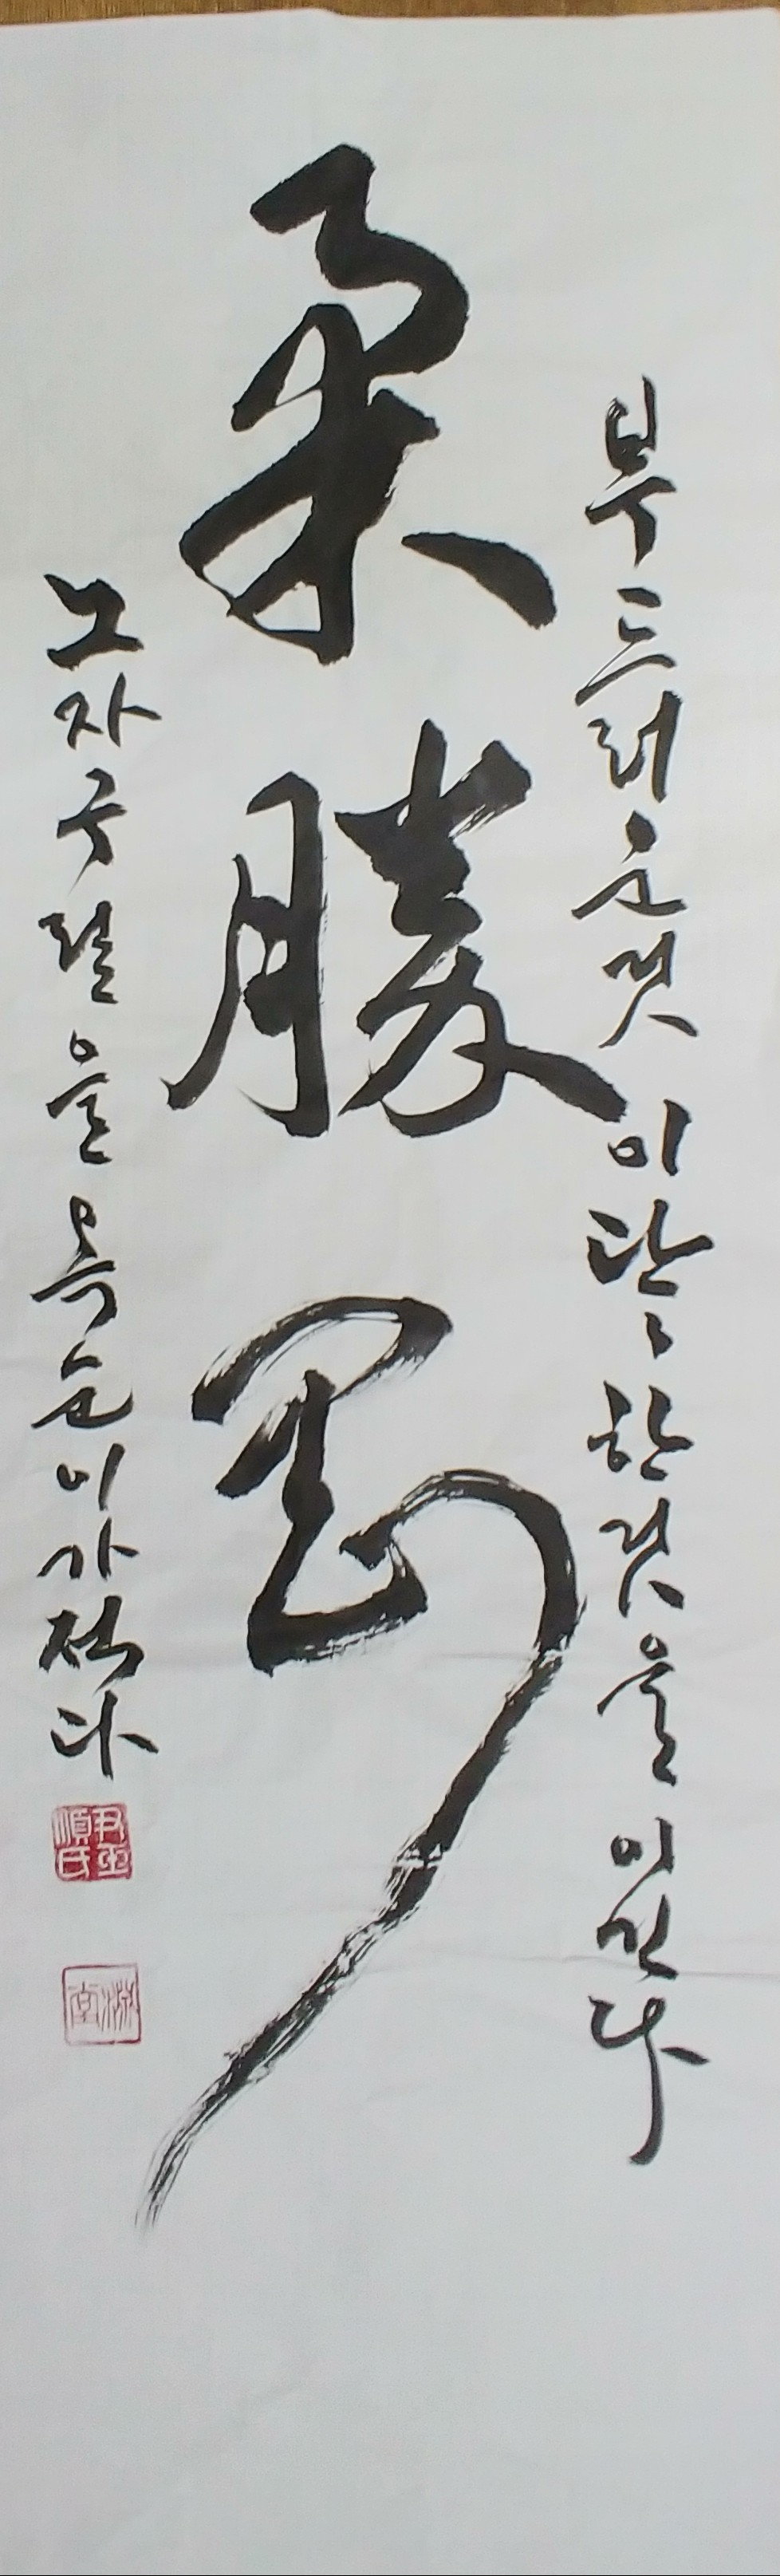 부드러운것이단〻한것을이긴다
柔勝剛
노자구절을옥순이가적다
尹玉順氏